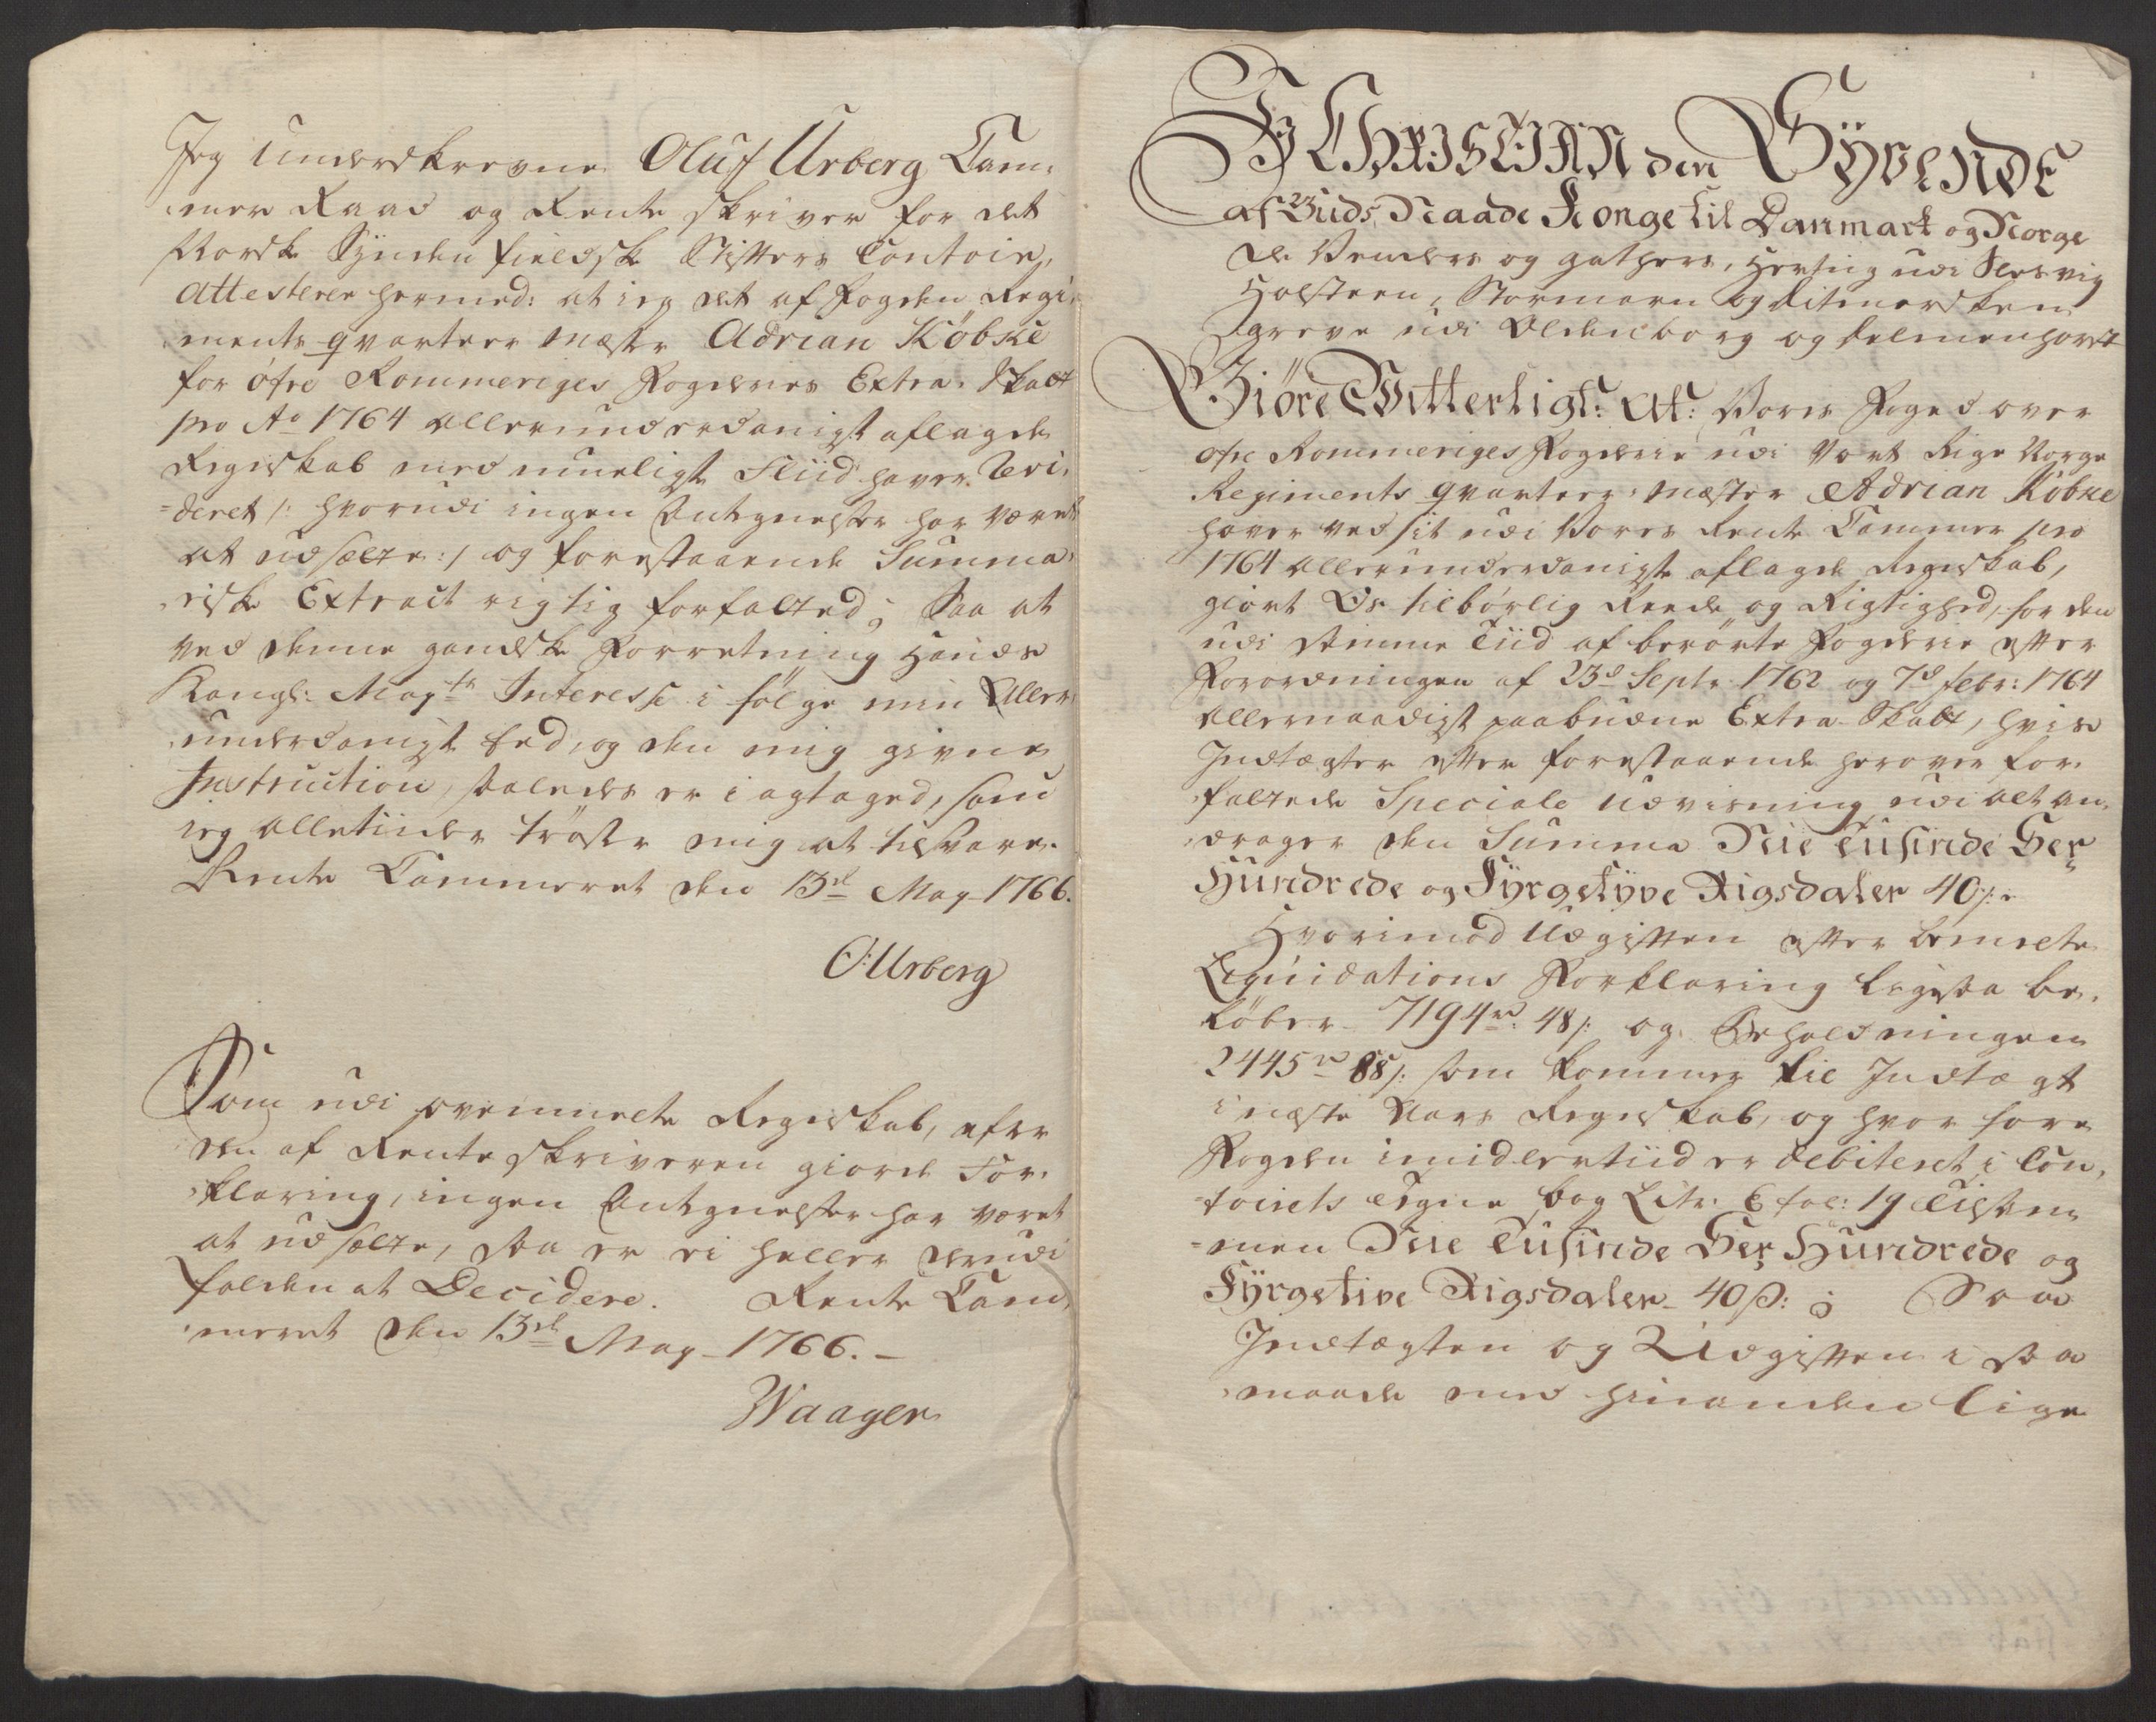 Jeg Underskrevne Oluf Urberg Cam-
mer Raad og Rente skriver for det
Norske Synden fieldske Stifters Contoir,
Attesterer hermed: at ieg det af Fogden Regi-
ments qvarteer Mæster Adrian Köbke
for öfre Rommeriges Fogderies Extra-Skatt
pro Ao 1764 allerunderdanigst aflagde
Regnskab med mueligste Fliid haver Revi-
deret /: hvorudi ingen Antegnelser har været
at udsætte :/ og forestaaende Summa-
riske Extract rigtig forfatted; Saa at
ved denne gandske Forretning Hands
Kongl: Mayts Interesse i fölge min Aller-
underdanigste Eed, og den mig givne
Instruction, saaledes er iagtaged, som
ieg alletider tröster mig at tilsvare.
Rente Cammeret den 13de May 1766.
O: Urberg
Som udi ovenmelte Regnskab, efter
den af Renteskriveren giorde For-
klaring, ingen Antegnelser har været
at udsætte, saa er ei heller derudi
falden at Decidere. Rente Cam-
meret den 13de May 1766.-
Waager
CHRISTIAN den SYVENDE
af Guds Naade Konge til Danmark og Norge
de Venders og Gothers, Hertug udi Slesvig
Holsteen, Stormarn og Ditmersken
Greve udi Oldenborg og Delmenhorst
Giöre Vitterligt: At: Vores Foged over
öfre Rommeriges Fogderie udi Vort Rige Norge
Regiments qvarteer-Mæster Adrian Köbke
haver ved sit udi Vores Rente Cammer pro
1764 allerunderdanigste aflagde Regnskab,
giort Os tilbörlig Reede og Rigtighed, for den
udi samme Tiid af berörte Fogderie efter
Forordningen af 23d Septr 1762 og 7d febr: 1764
allernaadigst paabudne Extra-Skatt, hvis
Indtægter efter forestaaende herover for-
fattede Speciale Udviisning udi alt an-
drager den Summa Nie Tusinde Sex
Hundrede og Fyrgetyve Rigsdaler 40 s:
Hvorimod Udgiften efter bemelte
Liqvidations Forklaring ligesaa be-
löber 7194 rd 48 s: og Beholdningen
2445 rd 88 s: som kommer til Indtægt
i næste Aars Regnskab, og hvor fore
Fogden imidlertiid er debiteret i Con-
toirets egne bog Litr: E fol: 19 Tilsam-
men Nie Tusinde Sex Hundrede og
Fyrgetive Rigsdaler 40 s:; Saa
Indtægten og Udgiften i saa
maade med hinanden lige